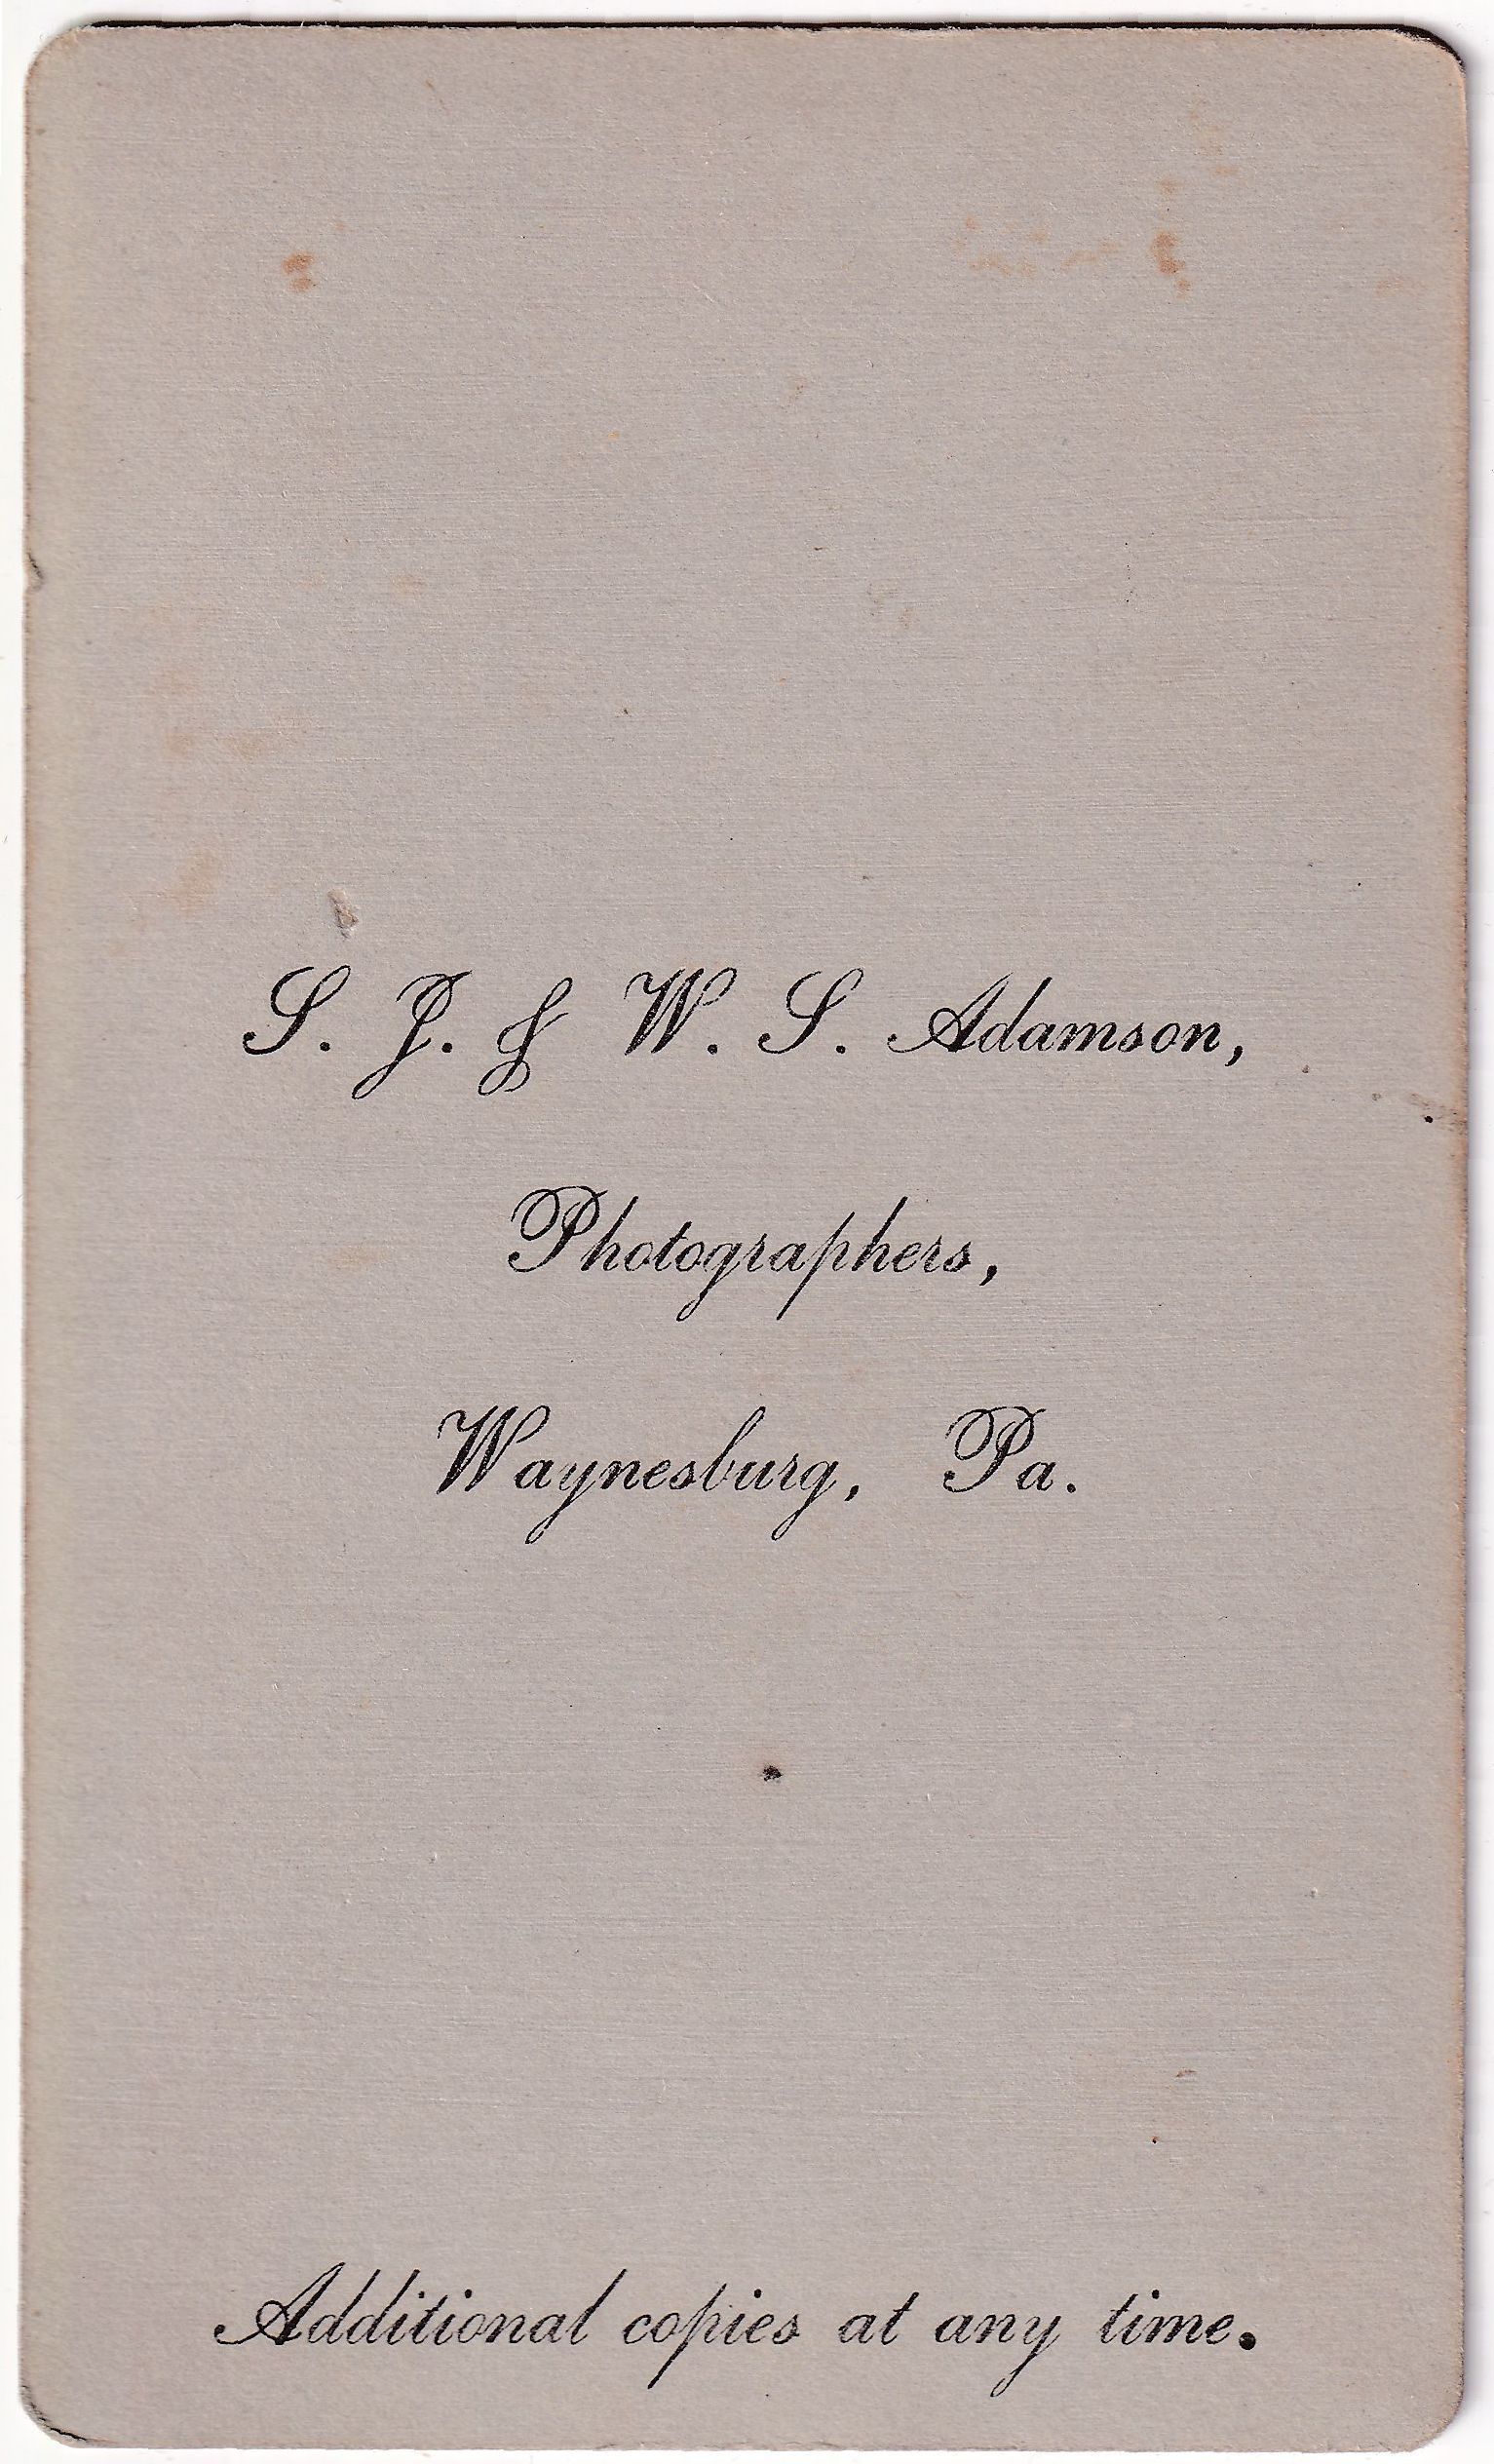 S. J. & W. S. Adamson,
Photographers,
Waynesburg, Pa.
Additional copies at any time.